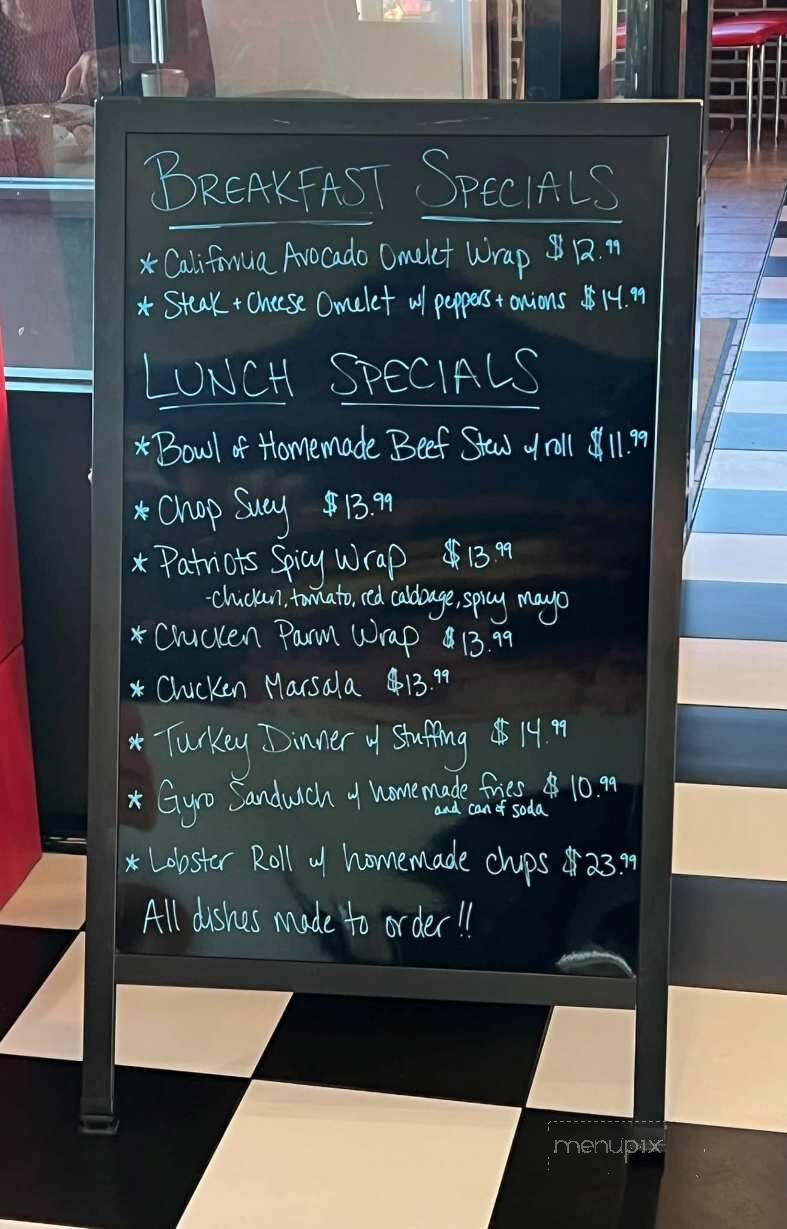 BREAKFAST SPECIALS
* California Avocado Omelet Wrap $12.99
* Steak + Cheese Omelet w/ peppers + onions $14.99
LUNCH SPECIALS
* Bowl of Homemade Beef Stew w/ roll $11.99
* Chop Suey $13.99
* Patriots Spicy Wrap $13.99
- chicken, tomato, red cabbage, spicy mayo
* Chicken Parm Wrap $13.99
* Chicken Marsala $13.99
* Turkey Dinner w/ Stuffing $14.99
* Gyro Sandwich w/ homemade fries $10.99
and can of soda
* Lobster Roll w/ homemade chips $23.99
All dishes made to order!!
menupix